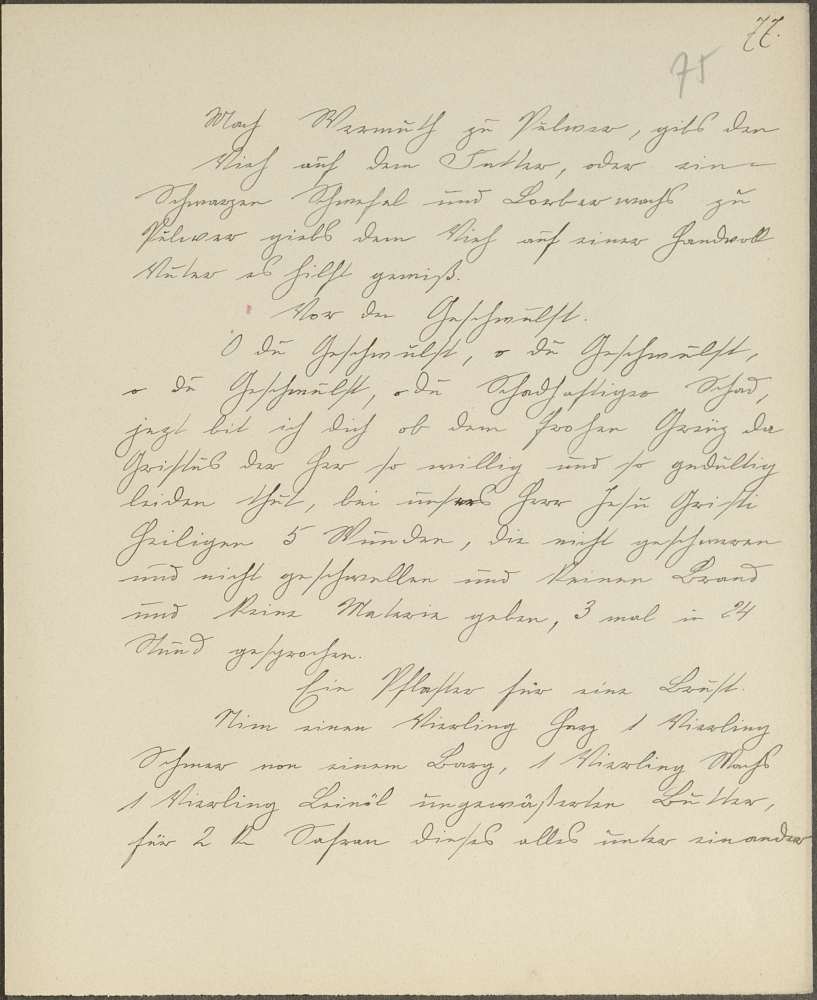 77.
75
Mach Wermuth zu Pulwer, gibs den
Vieh auf dem Futter, oder ein=
Schwarzen Schwefel und Lorber wachs zu
Pulwer giebs dem Vieh auf einer Handvoll
Vuter es hilft gewiß.
Vor der Geschwulst.
O du Geschwulst, o du Geschwulst,
o du Geschwulst, o du Schadhaftiger Schad,
jezt bit ich dich ob dem frohen Greuz da
Gristus der Herr so willig und so gedultig
leiden thut, bei unsers Herr Jesu Gristi
Heiligen 5 Wunden, die nicht geschwaren
und nicht geschwellen und keinen Brand
und keine Materie geben, 3 mal in 24
Stund gesprochen.
Ein Pflaster für eine Brust.
Nim einen Vierling Harz 1 Vierling
Schmer von einem Barg, 1 Vierling Wachs
1 Vierling Leinöl ungewäßerten Butter,
für 2 K Safran dieses alles unter einander